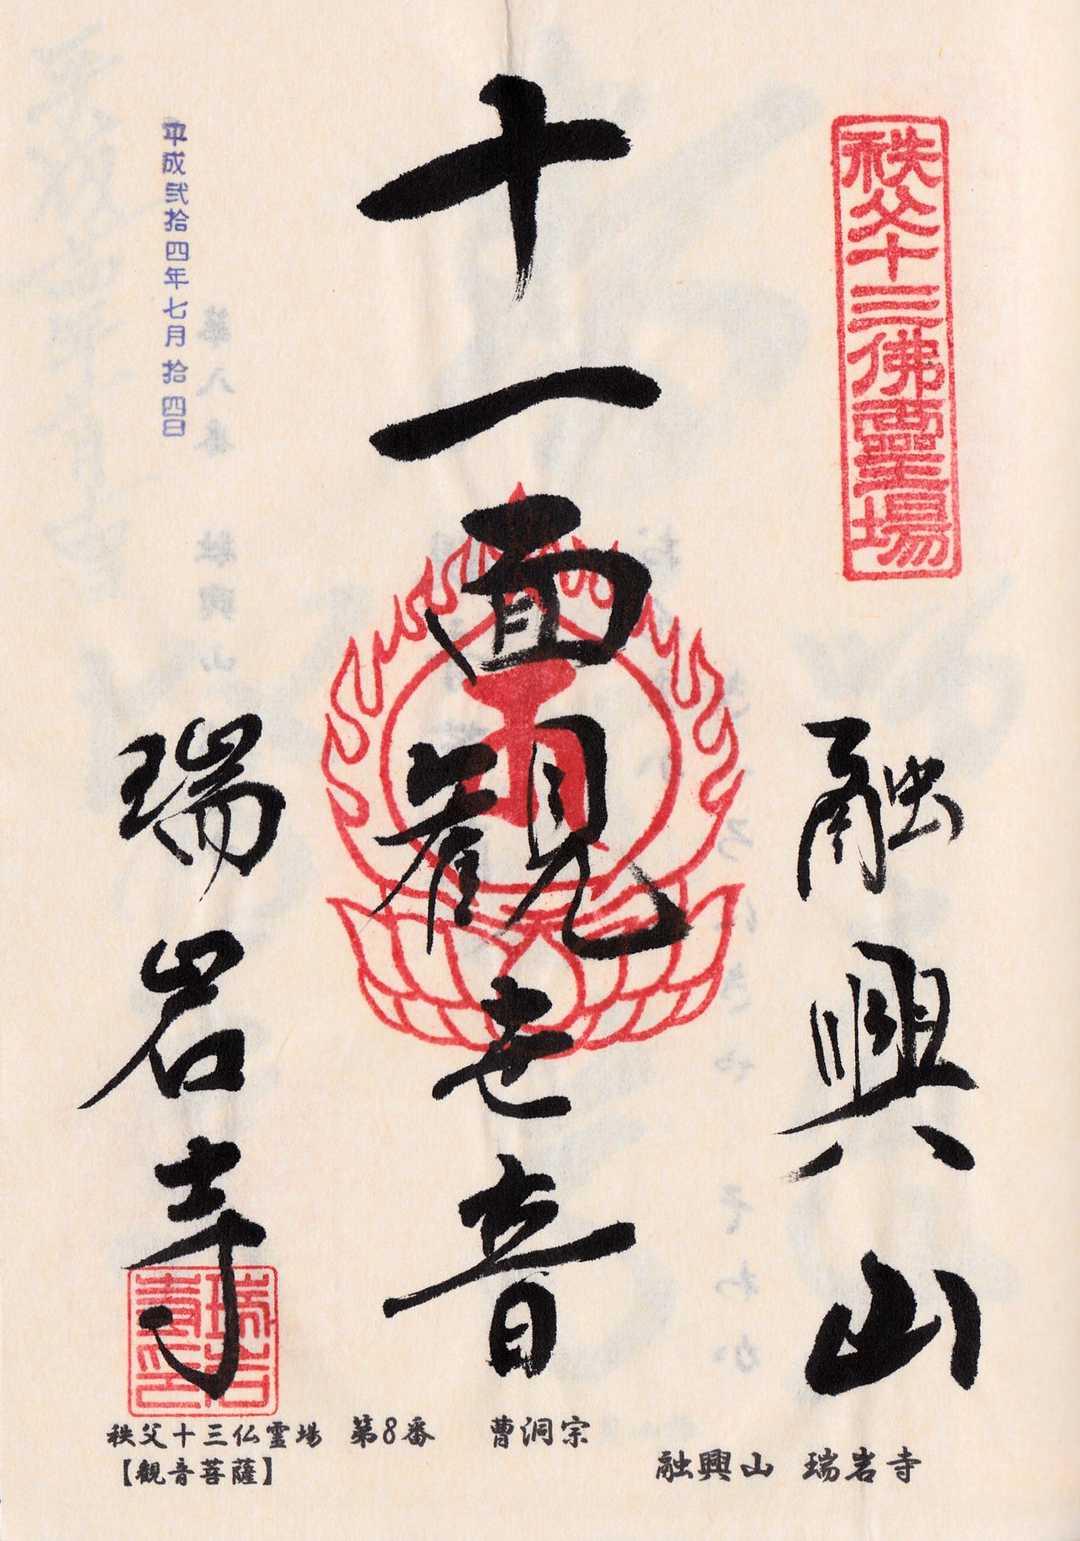 秩父十三佛霊場
融興山
十一面観世音
平成弐拾四年七月拾四日
瑞岩寺
瑞岩
寺印
秩父十三仏霊場 第8番 曹洞宗
【観音菩薩】
融興山 瑞岩寺